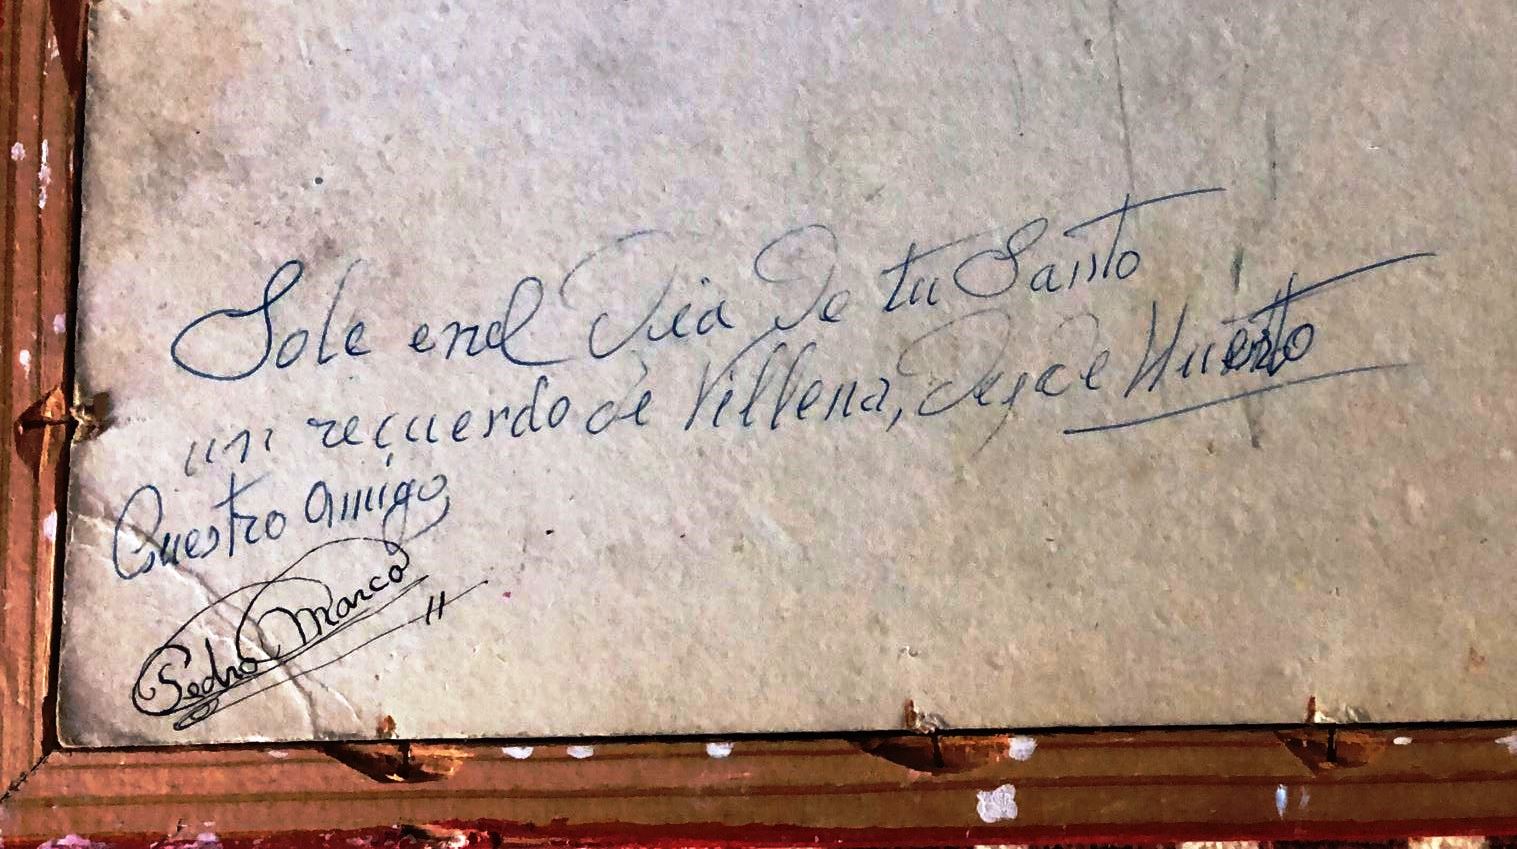 Sole en el Dia De tu Santo
un recuerdo de Villena, Desde Huerto
Cuestro amigo
Pedro Marco